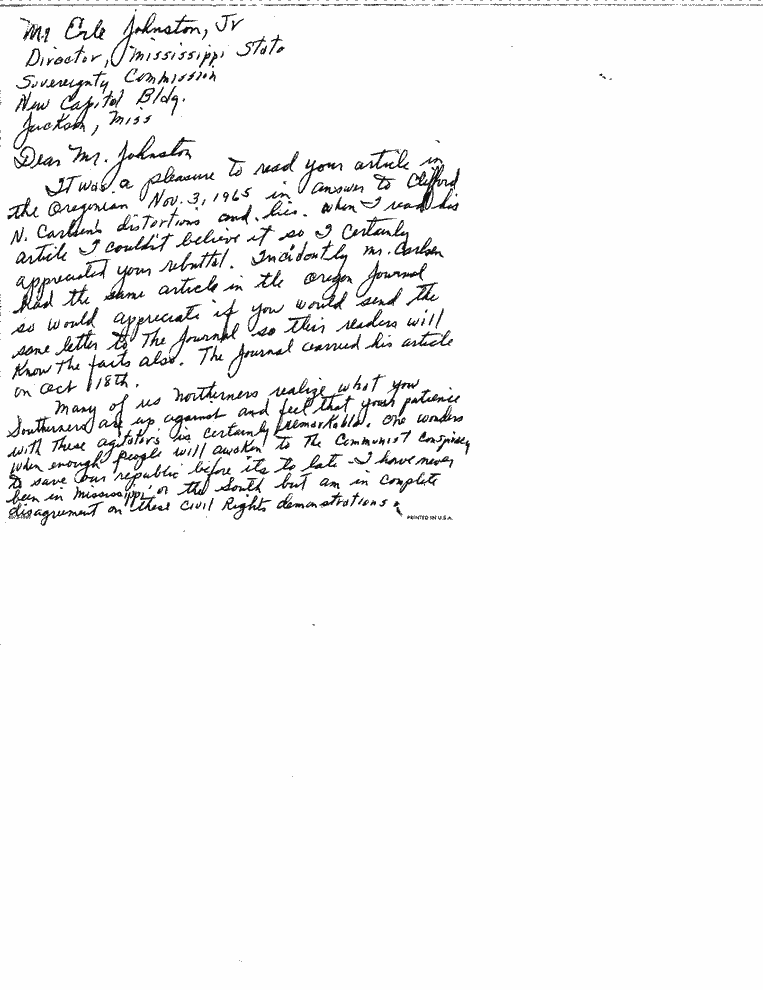 Mr Erle Johnston, Jr
Director, Mississippi State
Sovereignty Commission
New Capitol Bldg.
Jackson, Miss
Dear Mr. Johnston
It was a pleasure to read your article in
the Oregonian Nov. 3, 1965 in answer to Clifford
N. Carlsen's distortions and lies. When I read his
article I couldn't believe it so I certainly
appreciated your rebuttal. Incidently Mr. Carlsen
had the same article in the Oregon Journal
so would appreciate if you would send the
same letter to The Journal so their readers will
Know the facts also. The Journal carried his article
on Oct 18th.
Many of us Northerners realize what you
Southerners are up against and feel that your patience
with these agitators is certainly remarkable. One wonders
when enough people will awaken to the Communist Conspiracy
to save our republic before its to late - I have never
been in Mississippi or the South but am in complete
disagreement on these Civil Rights demonstrations.
PRINTED IN U.S.A.